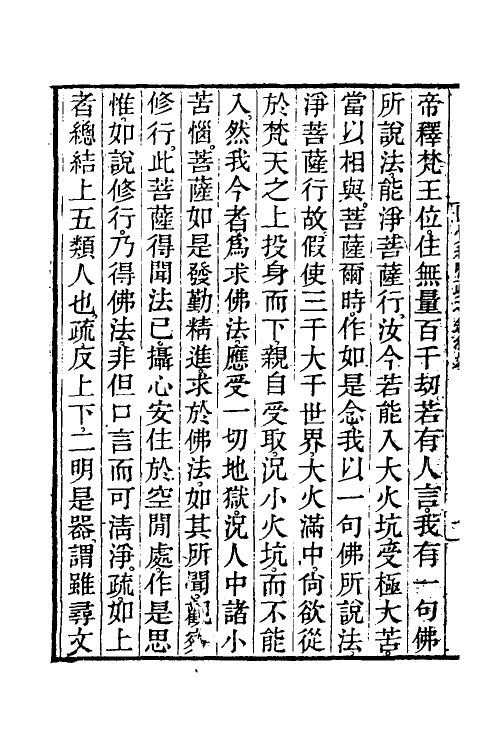 帝釋梵王位。住無量百千劫。若有人言。我有一句佛
所說法。能淨菩薩行。汝今若能入大火坑。受極大苦。
當以相與。菩薩爾時。作如是念。我以一句佛所說法。
淨菩薩行故。假使三千大千世界。大火滿中。尙欲從
於梵天之上投身而下。親自受取。況小火坑。而不能
入。然我今者。爲求佛法。應受一切地獄。況人中諸小
苦惱。菩薩如是發勤精進。求於佛法。如其所聞。觀察
修行。此菩薩得聞法已。攝心安住於空閒處。作是思
惟。如說修行。乃得佛法。非但口言而可淸淨。疏。如上
者總結上五類人也。疏反上下。二明是器。謂雖尋文